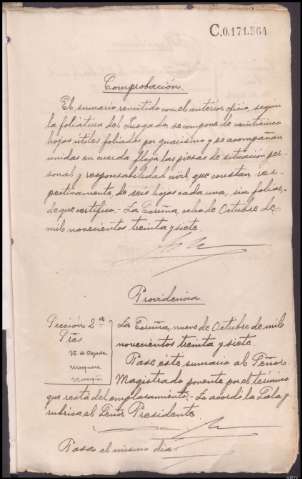 C.0.171.564
Comprobación.
El sumario remitido con el anterior oficio, según
la foliatura del Juzgado se compone de veinticinco
hojas útiles foliadas por guarismo y se acompañan
unidas en cuerda floja las piezas de situación per-
sonal y responsabilidad civil que constan res-
pectivamente de seis hojas cada una, sin foliar,
de que certifico. La Coruña, ocho de Octubre de
mil novecientos treinta y siete
Providencia
Sección 2ª
Sres
La Coruña, nueve de Octubre de mil
novecientos treinta y siete
Pase este sumario al Señor
Magistrado ponente por el término
que resta del emplazamiento. Lo acordó la Sala y
rubrica el Señor Presidente
Pasa el mismo día.